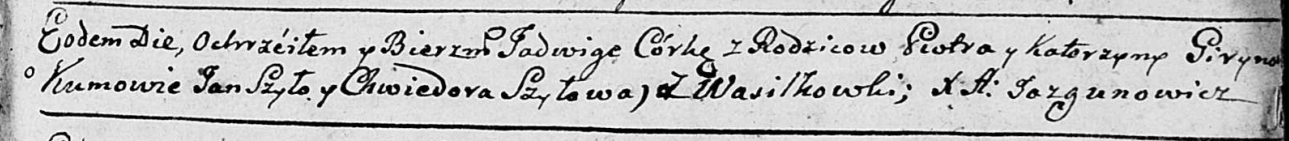 Eodem Die, Ochrzćiłem y Bierzmo Jadwigę Córkę z Rodzicow Piotra y Katarzyny
Kumowie Jan Szyło y Chwiedora Szyłowa, z Wasilkowki; X A: Jazgunowicz